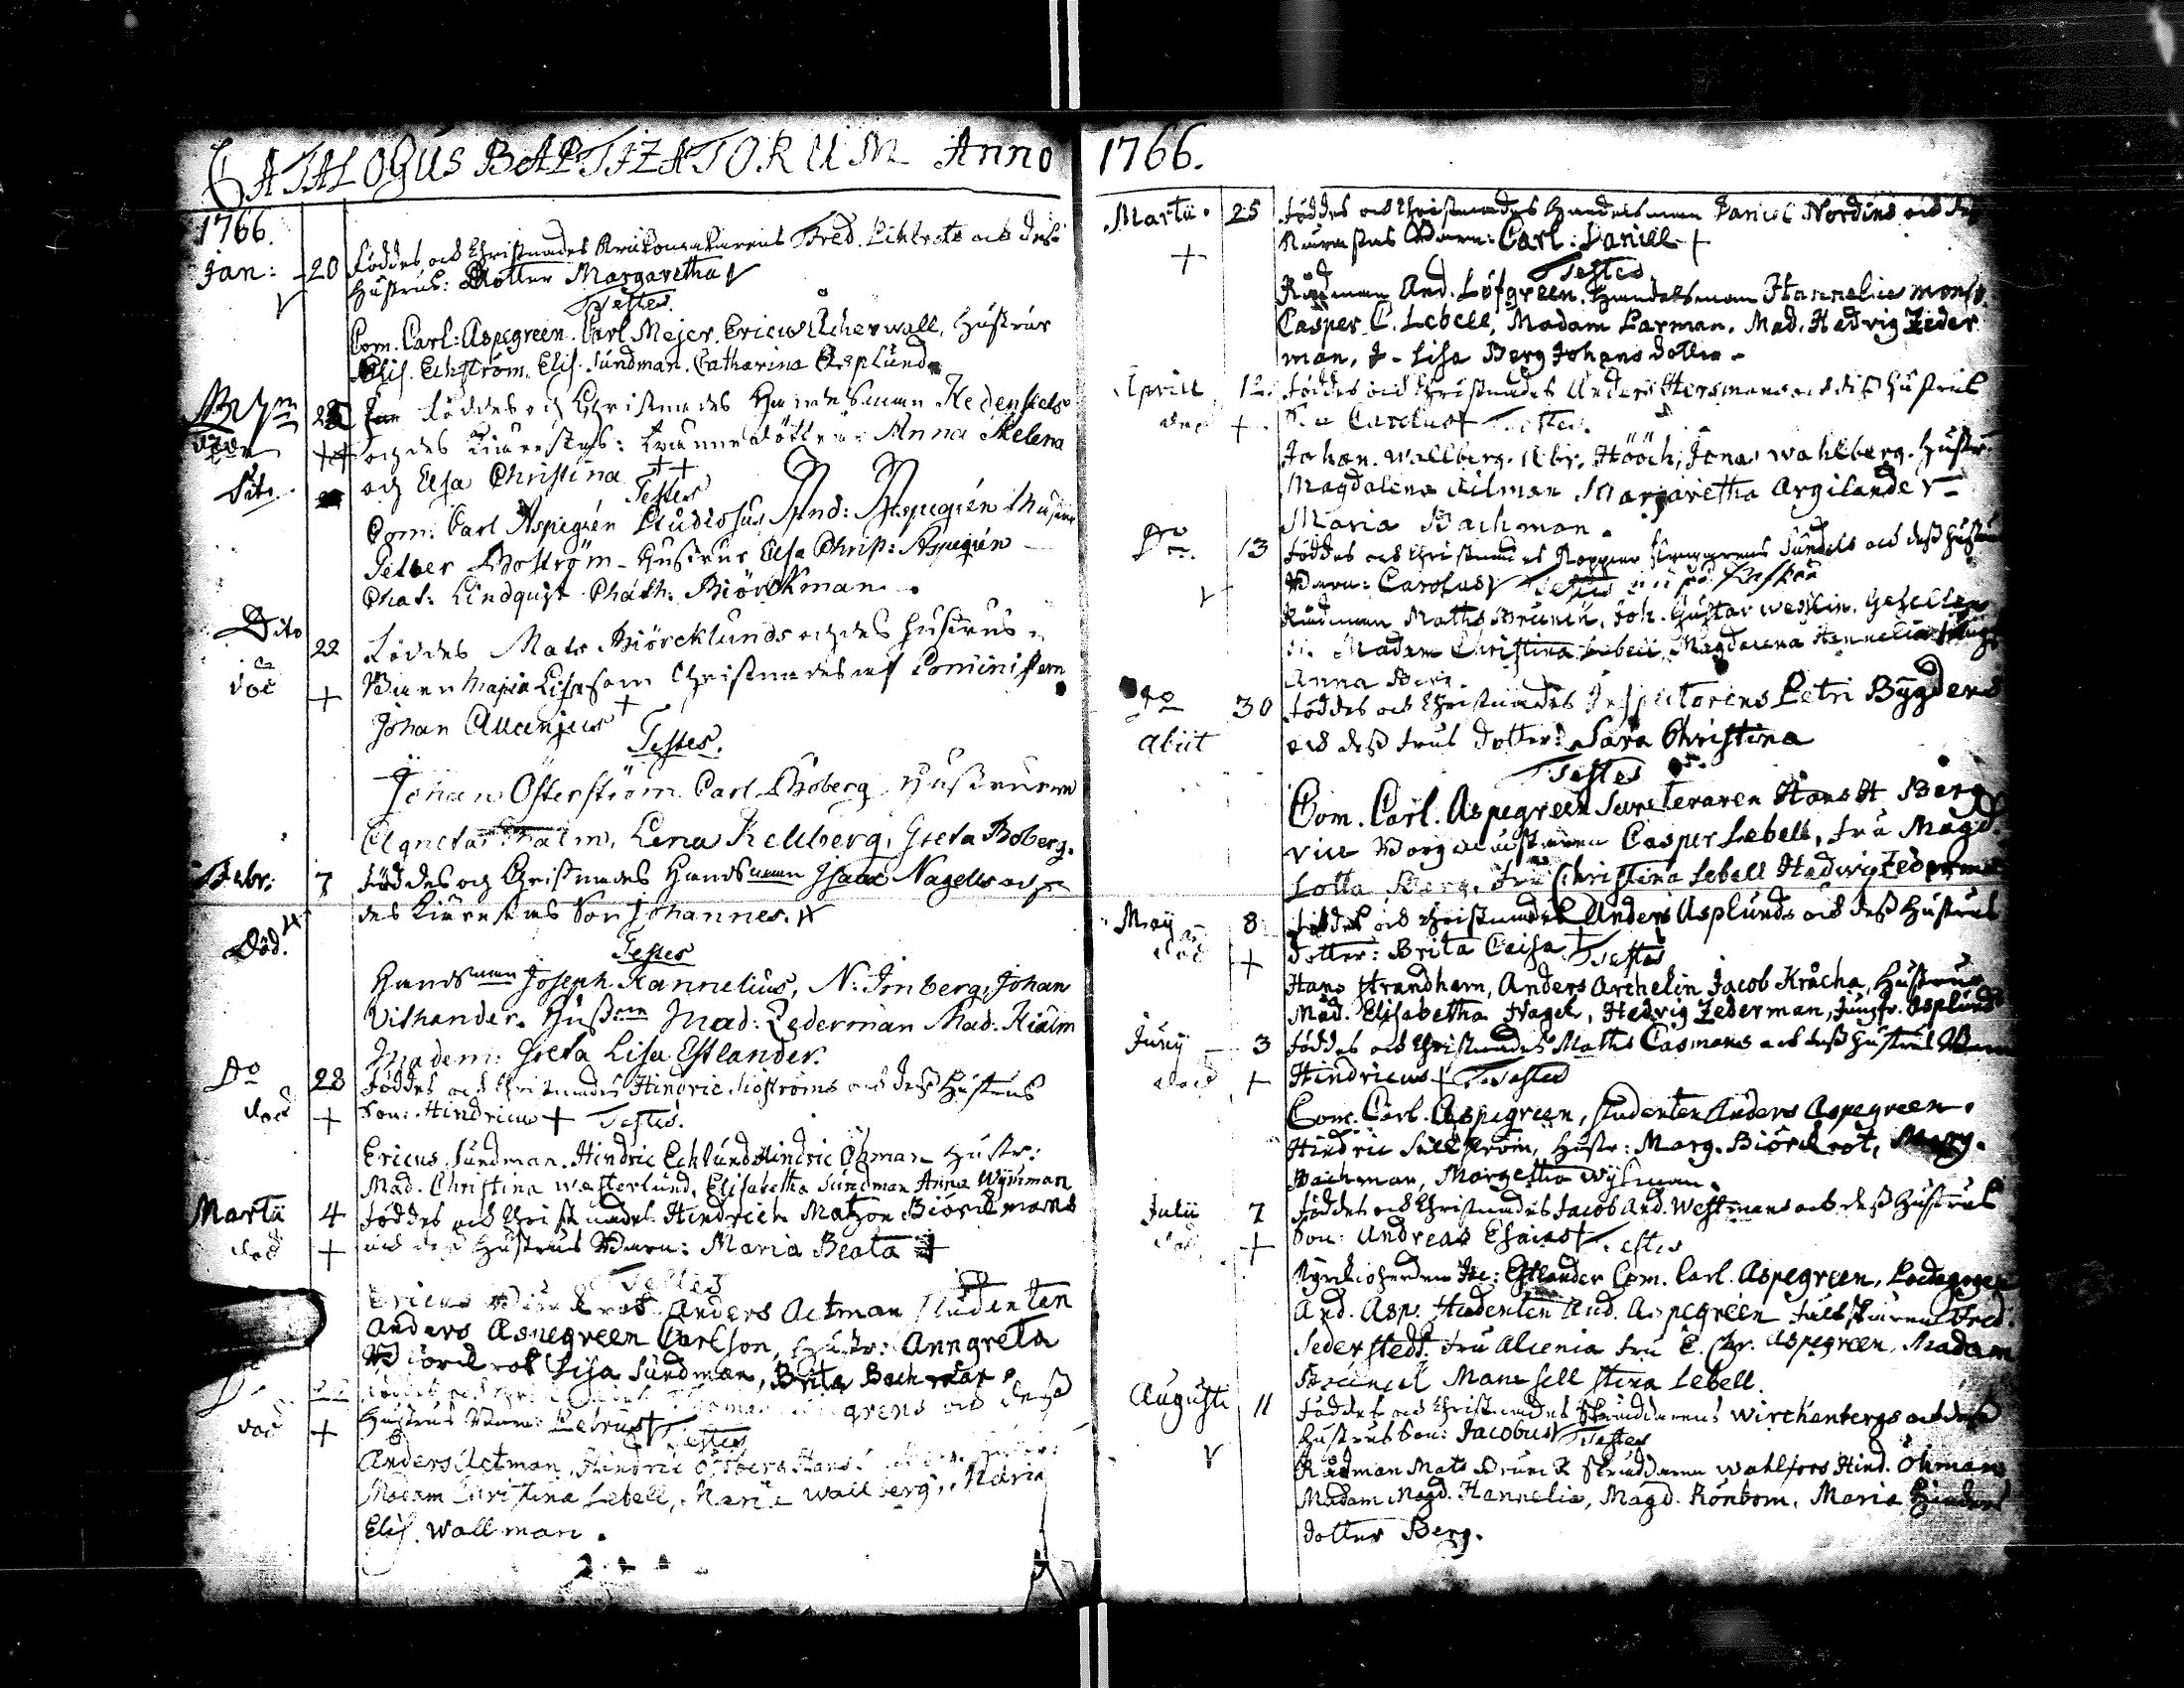 CATALOGUS BAPTIZATORUM Anno
1766.
Jan: 20 Föddes och Christnades Krukomakarens Fred. Liktrots och dess
Hustrus: Dotter Margaretha
Testes.
Com. Carl: Aspegreen. Carl Mejer. Ericus Åkerwall, Hustrur
Elis. Eckström. Elis. Sundman. Catharina Asplund.
Föddes och Christnades Handelsman
och des Kiärestas: Anna Helena
Dito och Elsa Christina ++
Testes
Com: Carl Aspegrén Studiosus And: Aspegrén
Petter Boström - Hustrur Elsa Christ: Aspegrén
Chat: Lindquist Chath: Biörckman.
Dito 22 Föddes Mats Biörcklunds och des hustrus
död + Barn Maria Lisa som Christnades af Comministern
Johan Alcenius +
Testes.
Johan Österström. Carl Boberg Hustrurne
Agneta Malm, Lena Kellberg, Greta Boberg.
Febr: 7 Föddes och Christnades Handsman Isaac Nagels och
des Kiärestas Son Johannes.
Död.
Testes
Handsman Joseph Hannelius, N: Imberg, Johan
Vithander. Hustr Mad: Zederman Mad. Hialm
Madem: Greta Lisa Estlander.
Do 28 Föddes och Christnades Hindric Siöströms och dess Hustrus
död + Son: Hindricus + Testes.
Ericus Sundman. Hindric Ecklund Hindric Öhman Hustr:
Mad. Christina Westerlund, Elisabetha Sundman Anna Wynman
Martii 4 Föddes och Christnades Hindrich Matzon Biörckmans
död + och dess Hustrus Barn: Maria Beata +
Testes
Ericus Anders Actman Studenten
Anders Aspegreen Carlson, Hustr: Anngreta
Biörckrot Lisa Sundman, Brita Bachman.
grens och dess
död + Hustrus Barn: Petrus + Testes
Anders Actman, Hindric Österberg Hans
Madam Christina Lebell, Maria Wallberg, Maria
Elis. Wallman.
1766.
Martii. 25 Föddes och Christnades Handelsman Daniel Nordins och dess
+ Kiärestas Barn: Carl: Daniell +
Testes
Rådman And. Löfgreen. Handelsman Hannelius Mons.
Casper C. Lebell, Madam Carman. Mad. Hedvig Zeder
man, J- Lisa Berg Johans dotter.
Aprill 12. Föddes och Christnades Anders Hersmans och dess Hustrus
död +. Son Carolus + Testes.
Johan. Wallberg. Abr. Hööck, Jonas Wahlberg. Hustr:
Magdalena Kilman Margaretha Argilander
Maria Bachman.
Do. 13 Föddes och Christnades Kopparslagarens Sundels och dess Hustrus
Barn: Carolus Testes
Rådman Mathts Brunen, Joh. Gustav Wesslin. Gesällen
Madam Christina Lebell, Magdalena Hannelia
Anna Berg.
Do 30 Föddes och Christnades Inspectorens Petri Bygdens
abiit och dess frus dotter: Sara Christina
Testes
Com. Carl. Aspegreen Hans H. Berg
vice Borgmästaren Casper Lebell, fru Magd.
Lotta Berg. fru Christina Lebell Hedvig Zederman
Maij 8 Föddes och Christnades Anders Asplunds och dess Hustrus
död + Dotter: Brita Caisa + Testes
Hans Strandhem, Anders Archelin Jacob Kråcha, Hustrur
Mad. Elisabetha Nagel, Hedvig Zederman, Jungfr. Asplund
Junij - 3 Föddes och Christnades Mathts Casmans och dess Hustrus Barn
död + Hindricus + Testes
Com. Carl. Aspegreen, Studenten Anders Aspegreen.
Hindric Sillström, Hustr: Marg. Biörckrot, Marg.
Bachman, Margetha Wijkman.
Julii 7 Föddes och Christnades Jacob And. Westmans och dess Hustrus
död + Son: Andreas Esaias + Testes
Kyrckioherden Jac: Estlander Com. Carl. Aspegreen, Pædagogen
And. Asp. Studenten And. Aspegreen Fältskären Fred.
Sederstedt. fru Alcenia fru E. Chr. Aspegreen, Madam
Brunell Mamsell Stina Lebell.
Augusti 11 Föddes och Christnades Skräddarens Wirckenbergs och dess
Hustrus Son: Jacobus Testes
Rådman Mats Brunell Skräddaren Wahlfors Hind. Öhman
Madam Magd. Hannelia, Magd. Rönbom, Maria
dotter Berg.